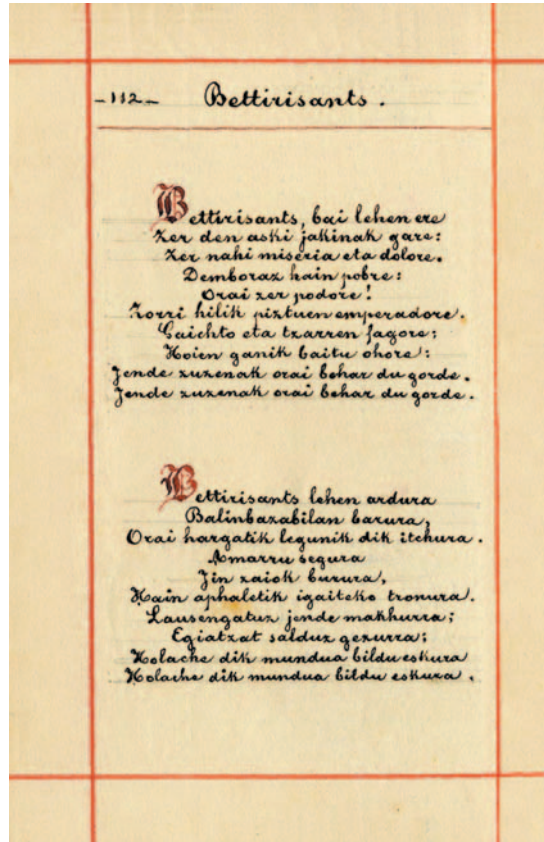 -112- Bettirisants.
Bettirisants, bai lehen ere
Zer den aski jakinak gare:
Zer nahi miseria eta dolore.
Demboraz hain pobre:
Orai zer podore!
Zorri hilik piztuen emperadore.
Gaichto eta tzarren fagore;
Hoien ganik baitu ohore:
Jende zuzenak orai behar du gorde.
Jende zuzenak orai behar du gorde.
Bettirisants lehen ardura
Balinbazabilan barura,
Orai hargatik legunik dik itchura.
Amarru segura
Jin zaiok burura,
Hain aphaletik igaiteko tronura.
Lausengatuz jende makhurra;
Egiatzat salduz gezurra;
Holache dik mundua bildu eskura
Holache dik mundua bildu eskura.